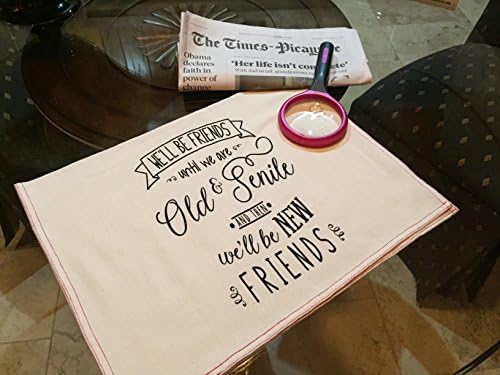 The Times-Picayune
Obama
declares
faith in
power of
change
'Her life isn't complete'
WE'LL BE FRIENDS
until we are
Old & Senile
AND THEN
we'll be NEW
FRIENDS